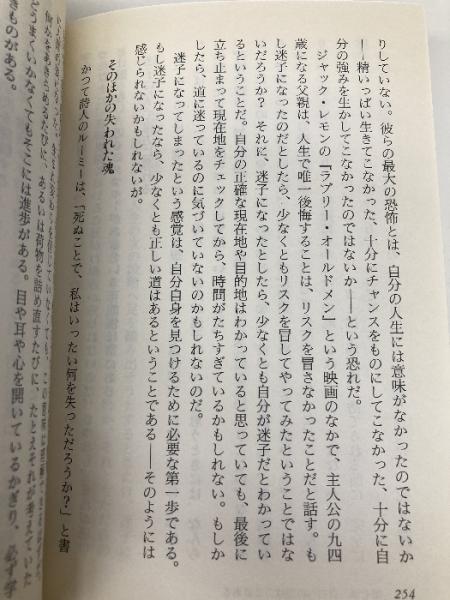 りしていない。彼らの最大の恐怖とは、自分の人生には意味がなかったのではないか
――精いっぱい生きてこなかった、十分にチャンスをものにしてこなかった、十分に自
分の強みを生かしてこなかったのではないか――という恐れだ。
ジャック・レモンの『ラブリー・オールドメン』という映画のなかで、主人公の九四
歳になる父親は、人生で唯一後悔することは、リスクを冒さなかったことだと話す。も
し迷子になったのだとしたら、少なくともリスクを冒してやってみたということではな
いだろうか? それに、迷子になったとしたら、少なくとも自分が迷子だとわかってい
るということだ。自分の正確な現在地や目的地はわかっていると思っていても、最後に
立ち止まって現在地をチェックしてから、時間がたちすぎているかもしれない。もしか
したら、道に迷っているのに気づいていないのかもしれないのだ。
迷子になってしまったという感覚は、自分自身を見つけるために必要な第一歩である。
もし迷子になったなら、少なくとも正しい道はあるということである――そのようには
感じられないかもしれないが。
そのほかの失われた魂
かつて詩人のルーミーは、「死ぬことで、私はいったい何を失っただろうか?」と書
254
あるいは荷物を詰め直すたびに、たとえそれが考えていた
どうまくいかなくてもそこには進歩がある。目や耳や心を開いているかぎり、必ず学
きものがある。